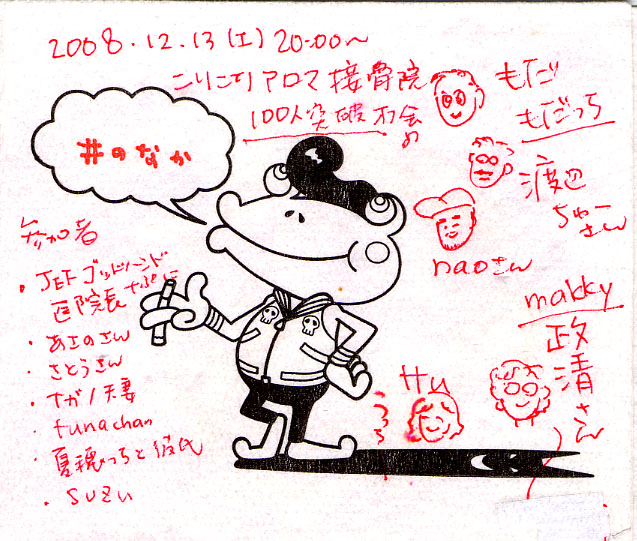 2008.12.13(土)20:00〜
こりこり アロマ 接骨院
100人突破 オフ会
井のなか
もだ
もだっち
渡辺
ちゃー
さん
naoさん
makky
政清さん
Hu
参加者
・JEF ゴッドハンド
医院長
・あさのさん
・さとうさん
・ナガノ夫妻
・funachan
・夏穂っちと彼氏
・suzu